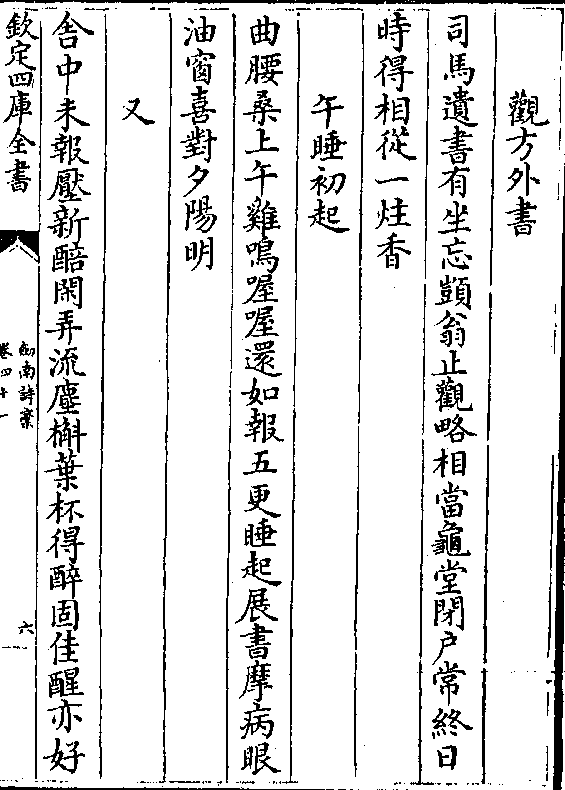 觀方外書
司馬遺書有坐忘顗翁止觀略相當龜堂閉户常終日
時得相從一炷香
午睡初起
曲腰桑上午雞鳴喔喔還如報五更睡起展書摩病眼
油窗喜對夕陽明
又
舍中未報壓新醅閑弄流塵槲葉杯得醉固佳醒亦好
欽定四庫全書
劍南詩稾
卷四十一
六